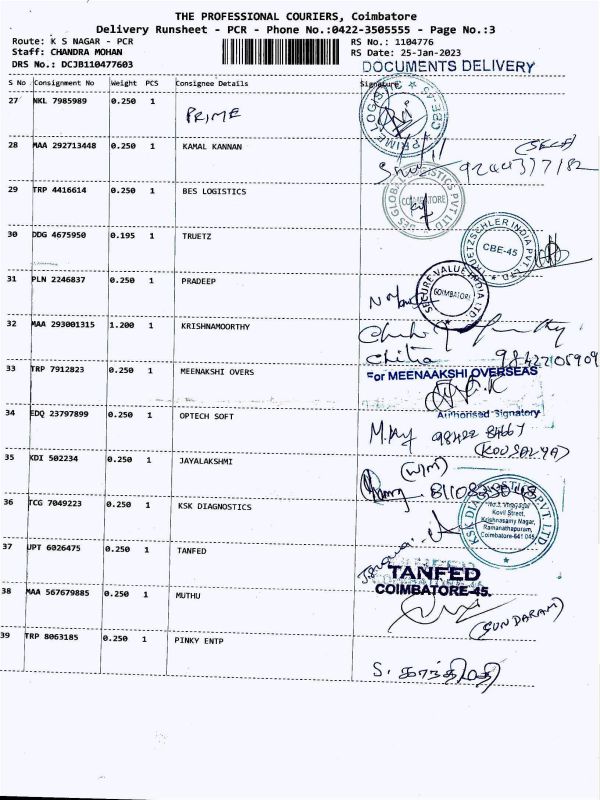 THE PROFESSIONAL COURIERS, Coimbatore
Delivery Runsheet - PCR - Phone No.:0422-3505555 - Page No.:3
Route: K S NAGAR - PCR
RS No.: 1104776
Staff: CHANDRA MOHAN
RS Date: 25-Jan-2023
DRS No.: DCJB110477603
DOCUMENTS DELIVERY
S No Consignment No Weight PCS Consignee Details Signature
27 NKL 7985989 0.250 1 PRIME
PRIME LOGIS
CBE-45
28 MAA 292713448 0.250 1 KAMAL KANNAN
(SELF)
29 TRP 4416614 0.250 1 BES LOGISTICS
BES GLOBAL LOGISTICS PVT LTD
COIMBATORE
30 DDG 4675950 0.195 1 TRUETZ
TRUETZSCHLER INDIA PVT LTD
CBE-45
31 PLN 2246837 0.250 1 PRADEEP
SECURE VALUE INDIA LTD
COIMBATORE
32 MAA 293001315 1.200 1 KRISHNAMOORTHY
9842705909
33 TRP 7912823 0.250 1 MEENAKSHI OVERS
For MEENAAKSHI OVERSEAS
Authorised Signatory
34 EDQ 23797899 0.250 1 OPTECH SOFT
98422 84667
(KOUSALYA)
35 KDI 502234 0.250 1 JAYALAKSHMI
(W/M)
36 TCG 7049223 0.250 1 KSK DIAGNOSTICS
KSK DIAGNOSTICS PVT LTD
Kovil Street,
Krishnasamy Nagar,
Ramanathapuram,
Coimbatore-641 045
37 JPT 6026475 0.250 1 TANFED
TANFED
COIMBATORE-45.
38 MAA 567679885 0.250 1 MUTHU
(SUNDARAM)
39 TRP 8063185 0.250 1 PINKY ENTP
S. காந்திமதி